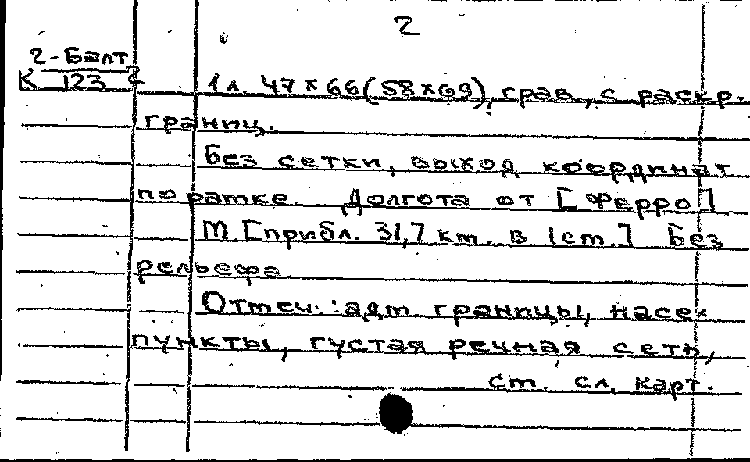 2
2-Балт
К 123 2
1 л. 47 х 66 (58 х 69), грав., с раскр.
границ.
Без сетки, выход координат
по рамке. Долгота от [Ферро]
М. [прибл. 31,7 км. в 1 см.] Без
рельефа
Отмеч.: адм. границы, насел.
пункты, густая речная сеть,
См. сл. карт.